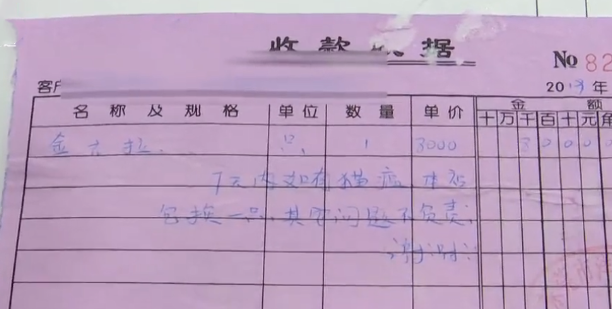 收款收据
No 82
客户
2013年
名称及规格 单位 数量 单价 金额
十万千百十元角
金吉拉 只 1 3000 30000
7天内如有猫瘟 本店
包换一只,其它问题不负责,
谢谢!